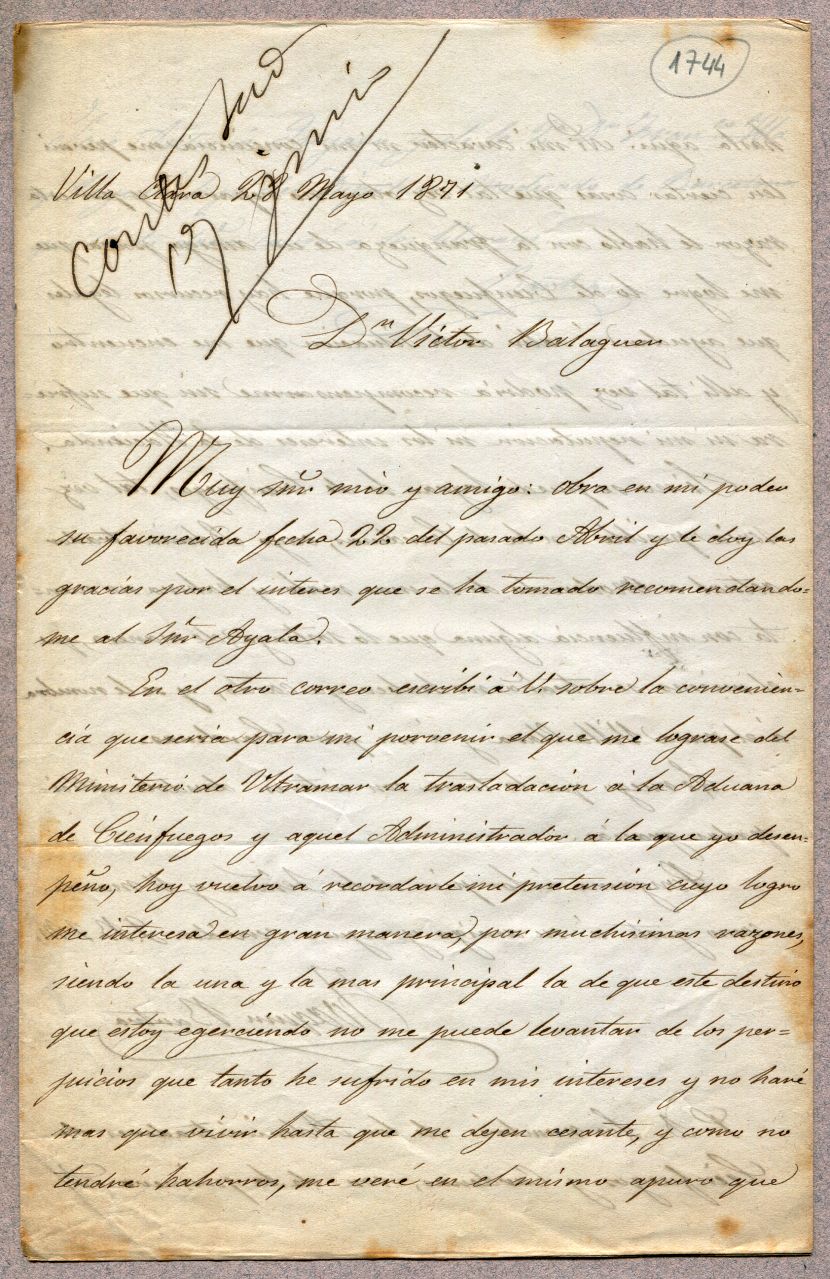 1744
Contestad
17 Junio
Villa Clará 28 Mayo 1871
Dn Victor Balaguer
Muy Sñr mio y amigo: obra en mi poder
su favorecida fecha 22 del pasado Abril y le doy las
gracias por el interes que se ha tomado recomendando=
me al Sñr Ayala.
En el otro correo escribí á V. sobre la convenien=
cia que seria para mi porvenir el que me lograse del
Ministerio de Ultramar la trasladacion á la Aduana
de Cienfuegos y aquel Administrador á la que yo desem=
peño, hoy vuelvo á recordarle mi pretension cuyo logro
me interesa en gran manera, por muchisimas razones,
siendo la una y la mas principal la de que este destino
que estoy egerciendo no me puede levantar de los per=
juicios que tanto he sufrido en mis intereses y no haré
mas que vivir hasta que me dejen cesante, y como no
tendré hahorros, me veré en el mismo apuro que